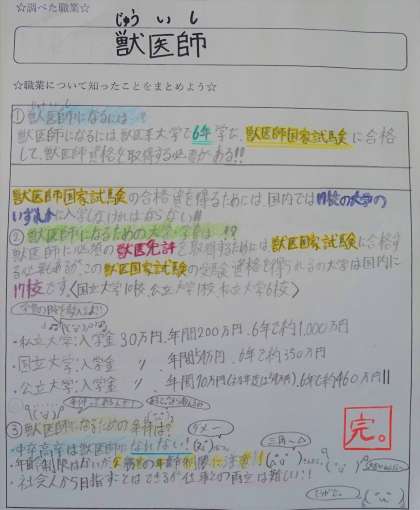 ☆調べた職業☆
じゅう い し
獣医師
☆職業について知ったことをまとめよう☆
①獣医師になるには
獣医師になるには、獣医系大学で6年学び、獣医師国家試験に合格
して、獣医師資格を取得する必要がある!!
獣医師国家試験の合格資を得るためには、国内では17校の大学の
いずれかに入学しなければならない!!
②獣医師になるための大学・学費は!?
獣医師に必要の獣医免許を取得するためには獣医師国家試験に合格す
る必要あるが、この獣医師国家試験の受験資格を得られるの大学は国内に
17校です。〈国立大学10校、公立大学1校、私立大学6校〉
・私立大学:入学金 30万円、年間200万円、6年で約1,000万円
・国立大学:入学金 〃 、年間54万円、6年で約350万円
・公立大学:入学金 〃 、6年で約460万円!!
③獣医師になるための条件は?
ダメー
・中卒高卒は獣医師になれない!
三角〜△
・年齢制限はないが、の年齢制限に注意!!
・社会人から目指すことはできるが仕事との両立は難しい!
完。